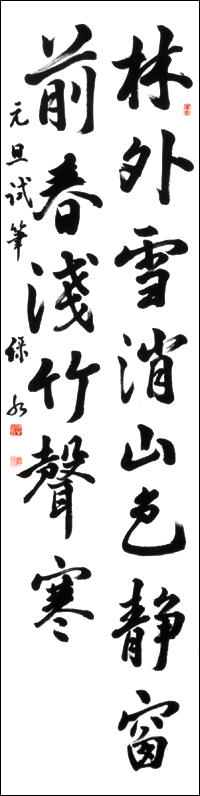 林外雪消山色静窗
前春淺竹聲寒
元旦试筆 緑水